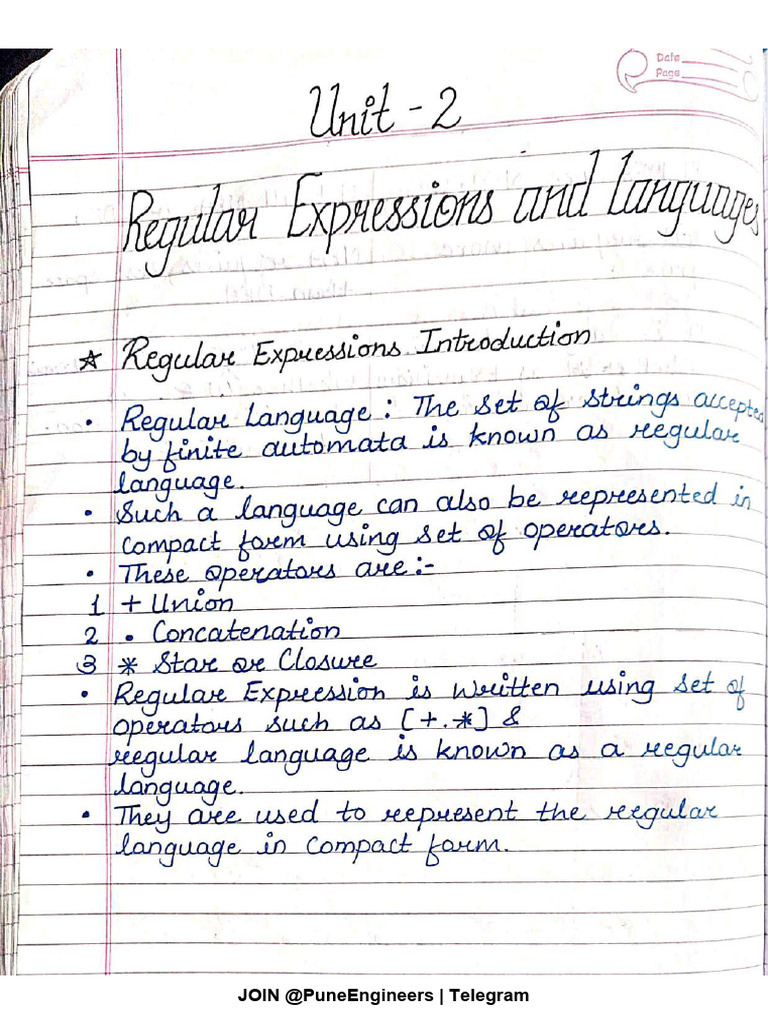 Date
Page
Unit - 2
Regular Expressions and Languages
★ Regular Expressions Introduction
• Regular Language : The set of strings accepted
by finite automata is known as regular
language.
• Such a language can also be represented in
compact form using set of operators.
• These operators are :-
1 + Union
2 . Concatenation
3 * Star or Closure
• Regular Expression is written using set of
operators such as [+.*] &
regular language is known as a regular
language.
• They are used to represent the regular
language in compact form.
JOIN @PuneEngineers | Telegram